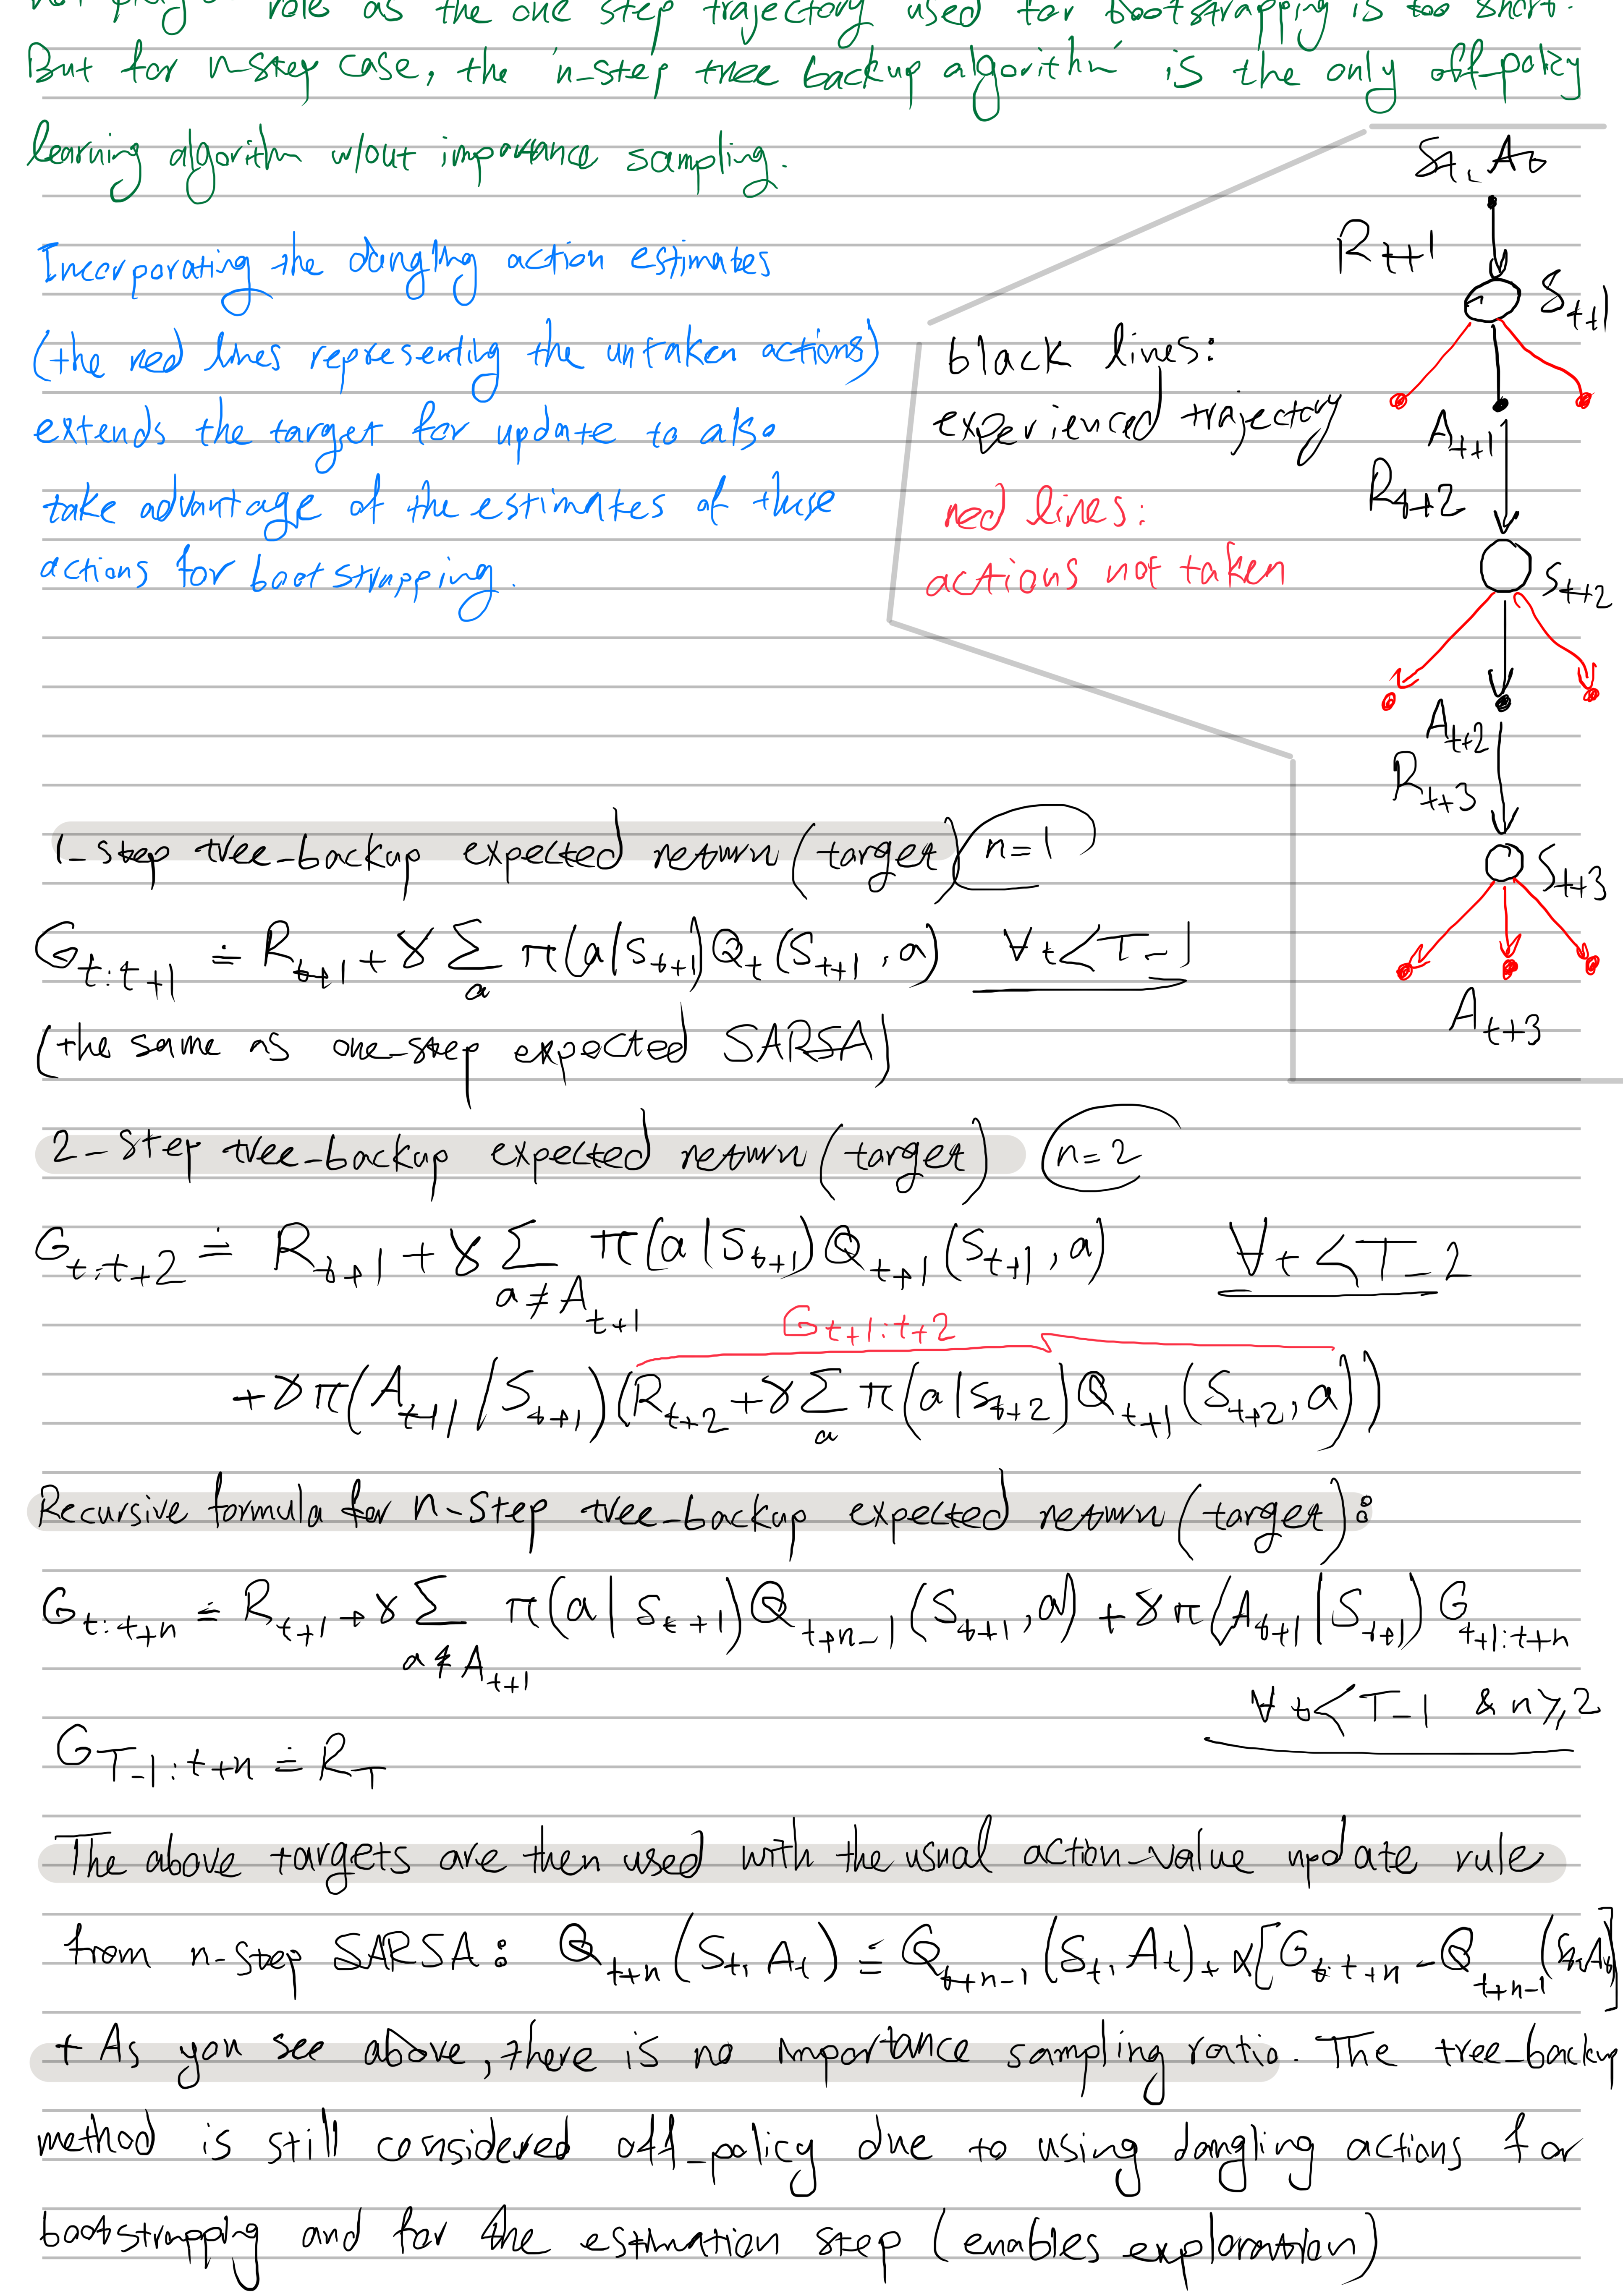 not play a role as the one step trajectory used for bootstrapping is too short.
But for n-step case, the "n-step tree backup algorithm" is the only off-policy
learning algorithm w/out importance sampling.
Incorporating the dangling action estimates
(the red lines representing the untaken actions)
extends the target for update to also
take advantage of the estimates of these
actions for bootstrapping.
black lines:
experienced trajectory
red lines:
actions not taken
S_t, A_t
R_{t+1}
S_{t+1}
A_{t+1}
R_{t+2}
S_{t+2}
A_{t+2}
R_{t+3}
S_{t+3}
A_{t+3}
1-step tree-backup expected return (target) n=1
G_{t:t+1} ≐ R_{t+1} + γ Σ_a π(a|S_{t+1}) Q_t (S_{t+1}, a) ∀t<T-1
(the same as one-step expected SARSA)
2-step tree-backup expected return (target) n=2
G_{t:t+2} ≐ R_{t+1} + γ Σ_{a≠A_{t+1}} π(a|S_{t+1}) Q_{t+1} (S_{t+1}, a) ∀t<T-2
G_{t+1:t+2}
+ γπ(A_{t+1}|S_{t+1}) (R_{t+2} + γ Σ_a π(a|S_{t+2}) Q_{t+1} (S_{t+2}, a))
Recursive formula for n-step tree-backup expected return (target):
G_{t:t+n} ≐ R_{t+1} + γ Σ_{a≠A_{t+1}} π(a|S_{t+1}) Q_{t+n-1} (S_{t+1}, a) + γπ(A_{t+1}|S_{t+1}) G_{t+1:t+n}
∀t<T-1 & n≥2
G_{T-1:t+n} ≐ R_T
The above targets are then used with the usual action-value update rule
from n-step SARSA: Q_{t+n} (S_t, A_t) ≐ Q_{t+n-1} (S_t, A_t) + α[G_{t:t+n} - Q_{t+n-1} (S_t, A_t)]
+ As you see above, there is no importance sampling ratio. The tree-backup
method is still considered off-policy due to using dangling actions for
bootstrapping and for the estimation step (enables exploration)